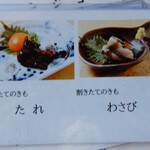 たてのきも
たれ
割きたてのきも
わさび